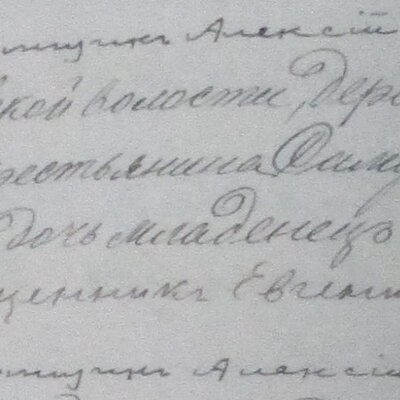 Алексій
ской волости, дер
крестьянина
дочь младенецъ
щенникъ Евгені
Алексій